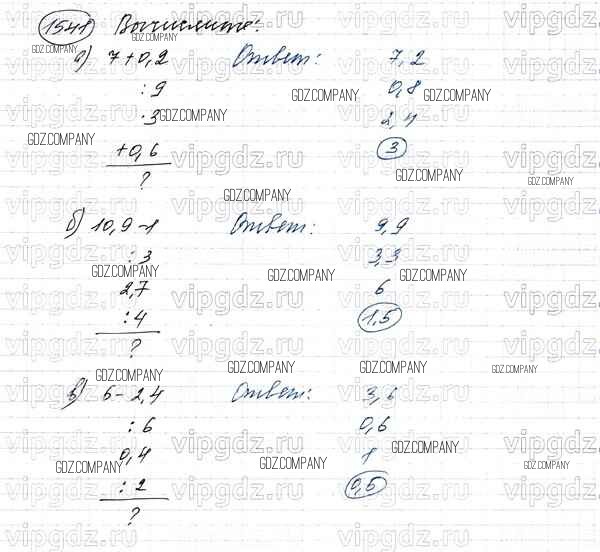 1541 Вычислите:
а) 7 + 0,2 Ответ: 7,2
: 9 0,8
· 3 2,4
+ 0,6 3
?
б) 10,9 - 1 Ответ: 9,9
: 3 3,3
2,7 6
: 4 1,5
?
в) 6 - 2,4 Ответ: 3,6
: 6 0,6
0,4 1
: 2 0,5
?
vipgdz.ru
GDZ.COMPANY